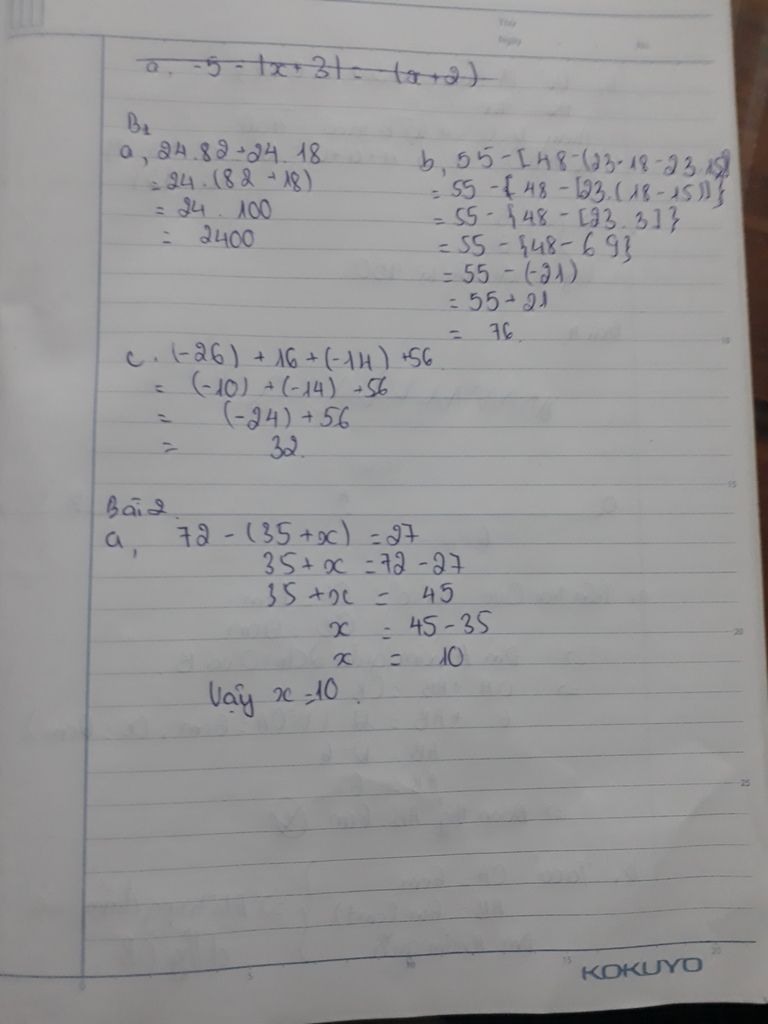 a, -5 - |x + 3| = -(x + 2)
B1
a, 24.82 + 24.18
= 24.(82 + 18)
= 24 . 100
= 2400
b, 55 - [48 - (23.18 - 23.15)]
= 55 - { 48 - [23.(18 - 15)]}
= 55 - {48 - [23.3]}
= 55 - {48 - 69}
= 55 - (-21)
= 55 + 21
= 76.
c. (-26) + 16 + (-14) + 56
= (-10) + (-14) + 56
= (-24) + 56
= 32.
Bài 2.
a, 72 - (35 + x) = 27
35 + x = 72 - 27
35 + x = 45
x = 45 - 35
x = 10
Vậy x = 10.
KOKUYO